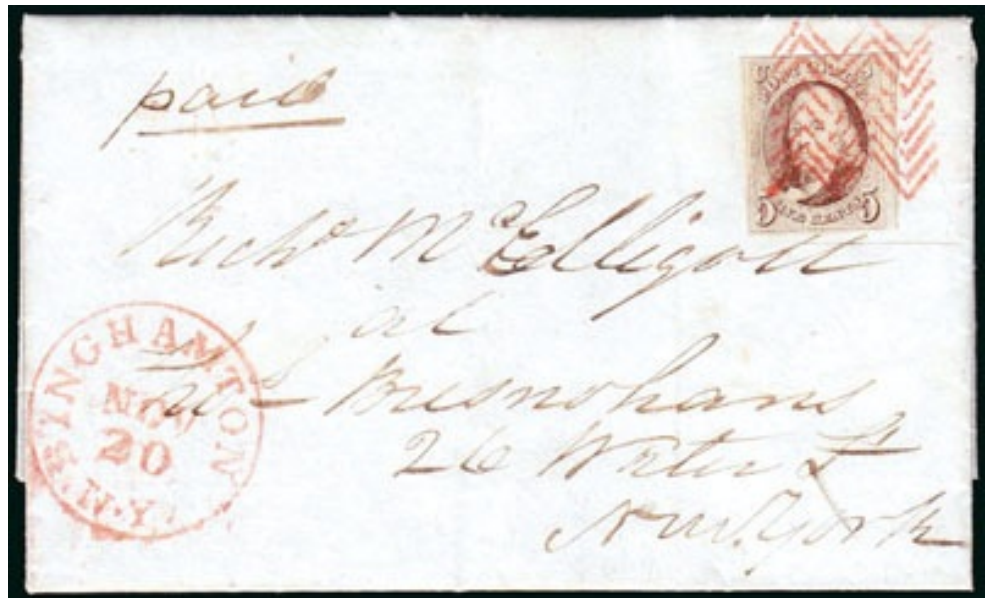 paid
POST OFFICE
5 FIVE CENTS. 5
Richd McElligott
at
Bresnohans
26 Water St
New York
BINGHAMTON
NOV
20
N.Y.